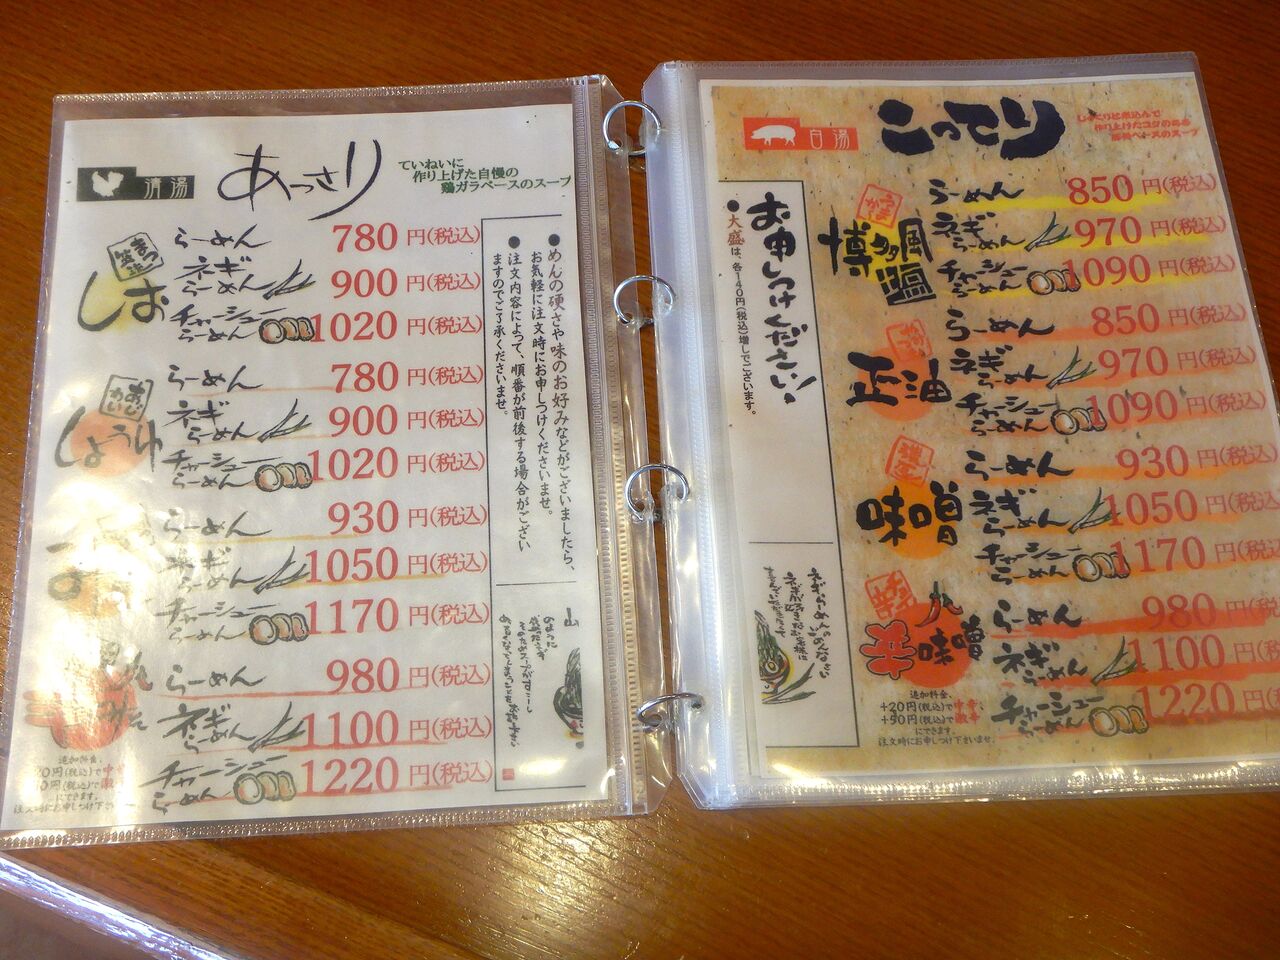 清湯
あっさり
ていねいに
作り上げた自慢の
鶏ガラベースのスープ
しお
らーめん 780円(税込)
ネギらーめん 900円(税込)
チャーシューらーめん 1020円(税込)
しょうゆ
らーめん 780円(税込)
ネギらーめん 900円(税込)
チャーシューらーめん 1020円(税込)
らーめん 930円(税込)
ネギらーめん 1050円(税込)
チャーシューらーめん 1170円(税込)
らーめん 980円(税込)
ネギらーめん 1100円(税込)
チャーシューらーめん 1220円(税込)
追加料金、
円(税込)で中
円(税込)で激
にできます。
注文時にお申しつけ下さい
●めんの硬さや味のお好みなどがございましたら、
お気軽に注文時にお申しつけくださいませ。
●注文内容によって、順番が前後する場合がござい
ますのでご了承くださいませ。
白湯
こってり
じっくり煮込んで
作り上げたコクのある
豚骨ベースのスープ
お申しつけください!
●大盛は、各140円(税込)増しでございます。
博多風塩
らーめん 850円(税込)
ネギらーめん 970円(税込)
チャーシューらーめん 1090円(税込)
正油
らーめん 850円(税込)
ネギらーめん 970円(税込)
チャーシューらーめん 1090円(税込)
味噌
らーめん 930円(税込)
ネギらーめん 1050円(税込)
チャーシューらーめん 1170円(税込)
辛味噌
らーめん 980円(税込)
ネギらーめん 1100円(税込)
チャーシューらーめん 1220円(税込)
追加料金、
+20円(税込)で中辛、
+50円(税込)で激辛
にできます。
注文時にお申しつけ下さいませ。